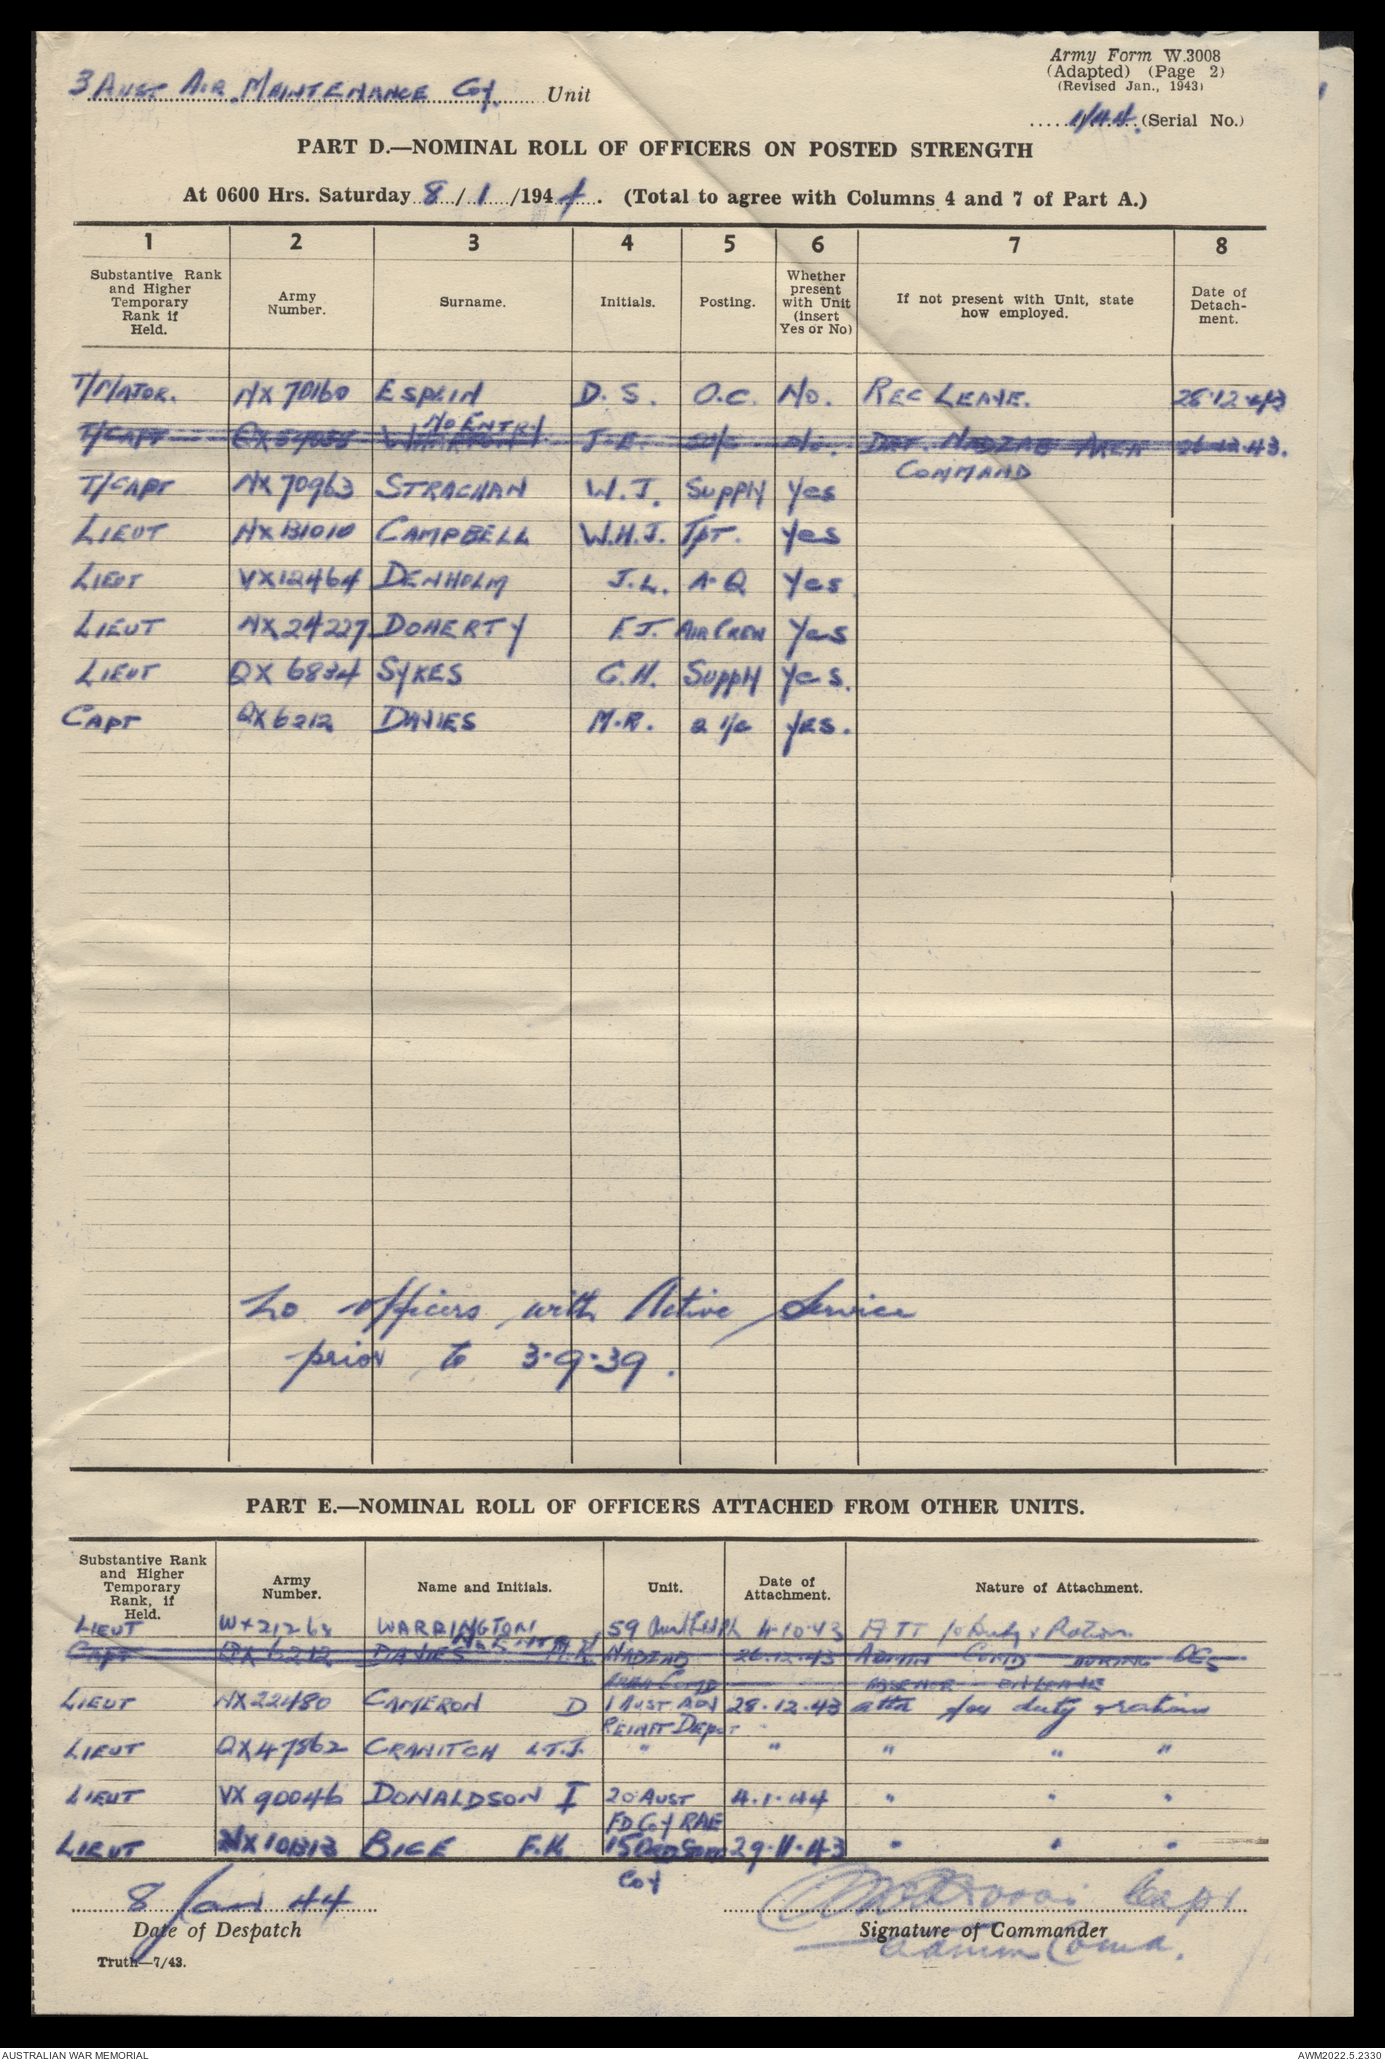 Army Form W.3008
(Adapted) (Page 2)
(Revised Jan., 1943)
3 Aust Air Maintenance Coy. Unit
1/44. (Serial No.)
PART D.—NOMINAL ROLL OF OFFICERS ON POSTED STRENGTH
At 0600 Hrs. Saturday 8/1/1944. (Total to agree with Columns 4 and 7 of Part A.)
1 2 3 4 5 6 7 8
Substantive Rank and Higher Temporary Rank if Held. Army Number. Surname. Initials. Posting. Whether present with Unit (insert Yes or No) If not present with Unit, state how employed. Date of Detach-ment.
T/MAJOR. NX 70160 ESPLIN D. S. O.C. No. REC LEAVE. 28.12.43
No ENTRY
T/CAPT J. E. DET. NADZAB AREA 26.12.43.
COMMAND
T/CAPT NX 70963 STRACHAN W. J. SUPPLY Yes
LIEUT NX 131010 CAMPBELL W.H.J. TPT. Yes
LIEUT VX12464 DENHOLM J.L. A-Q Yes
LIEUT NX 24227 DOHERTY F.J. AIR CREW Yes
LIEUT QX 6834 SYKES C.H. SUPPLY Yes.
CAPT QX6212 DAVIES M.R. 2 i/c Yes.
No officers with Active Service
prior to 3.9.39.
PART E.—NOMINAL ROLL OF OFFICERS ATTACHED FROM OTHER UNITS.
Substantive Rank and Higher Temporary Rank, if Held. Army Number. Name and Initials. Unit. Date of Attachment. Nature of Attachment.
LIEUT WX2126 WARRINGTON 59 4.10.43 ATT for Duty & Rations
No ENTRY
CAPT QX 6212 DAVIES M.R. NADZAB 26.12.43 ADMIN COMD DURING OCs
AREA COMD ABSENCE ON LEAVE
LIEUT NX 22480 CAMERON D 1 AUST ADV 28.12.43 atta for duty & rations
REINFT DEPOT
LIEUT QX47862 CRANITCH L.T.J. " " " " "
LIEUT VX 90046 DONALDSON I 20 AUST 4.1.44 " " "
FD COY RAE
LIEUT NX101313 BICE F.K. 15 29.11.43 " " "
COY
8 Jan 44
Capt
Date of Despatch Signature of Commander
Admin Comd.
Truth—7/43.
AUSTRALIAN WAR MEMORIAL AWM2022.5.2330